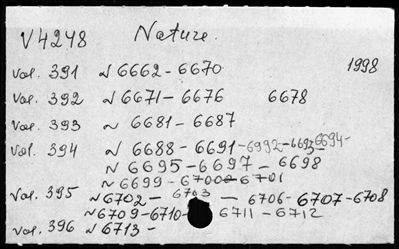 V4248 Nature.
Vol. 391 N 6662-6670 1998
Vol. 392 N 6671-6676 6678
Vol. 393 N 6681-6687
Vol. 394 N 6688-6691-6992-6693-6694-
N 6695-6697-6698
N 6699-6700-6701
Vol. 395 N 6702-6703-6706-6707-6708
N 6709-6710-6711-6712
Vol. 396 N 6713-